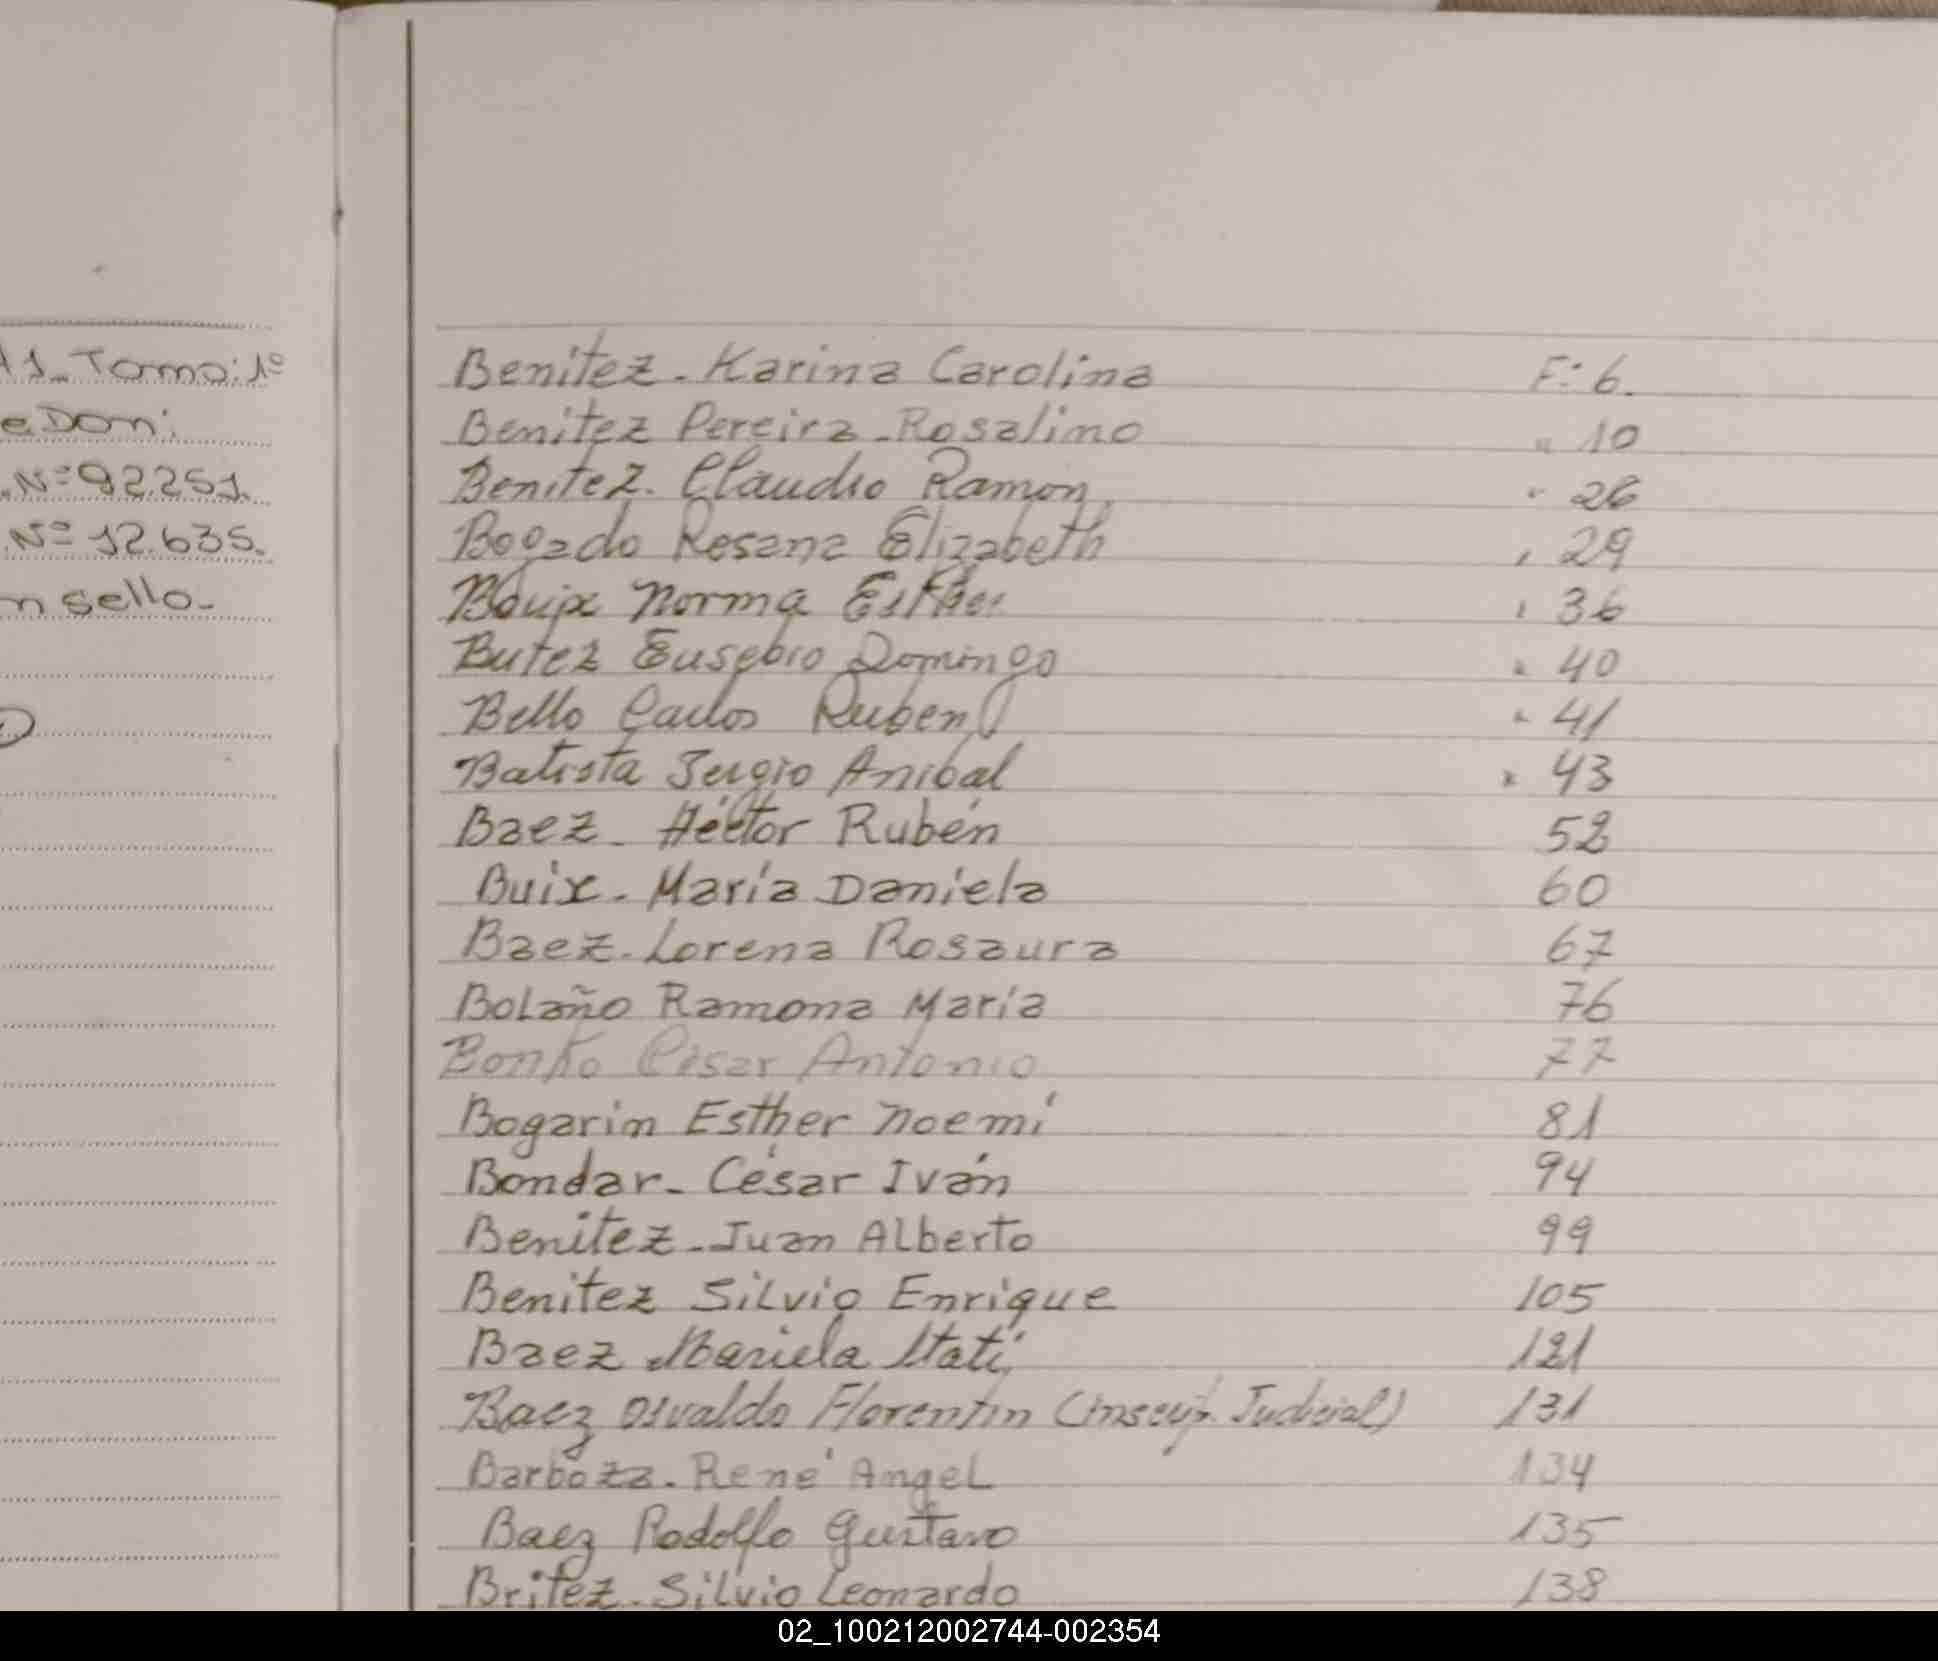 1_Tomo:1º
e Dom:
Nº 92251.
Nº 12.635.
n sello_
Benitez. Karina Carolina F: 6.
Benitez Pereira. Rosalino " 10
Benitez. Claudio Ramon. " 26
Bogado Rosana Elizabeth " 29
Norma Esther " 36
Butez Eusebio Domingo " 40
Bello Carlos Ruben " 41
Batista Sergio Anibal " 43
Baez_ Héctor Rubén 52
Buix. María Daniela 60
Baez. Lorena Rosaura 67
Bolaño Ramona María 76
César Antonio 77
Bogarin Esther Noemí 81
Bondar_ César Iván 94
Benitez_Juan Alberto 99
Benitez Silvio Enrique 105
Baez Mariela Itatí 121
Baez Osvaldo Florentin (Inscrip. Judicial) 131
Barboza. René Angel 134
Baez Rodolfo Gustavo 135
Britez. Silvio Leonardo 138
02_100212002744-002354